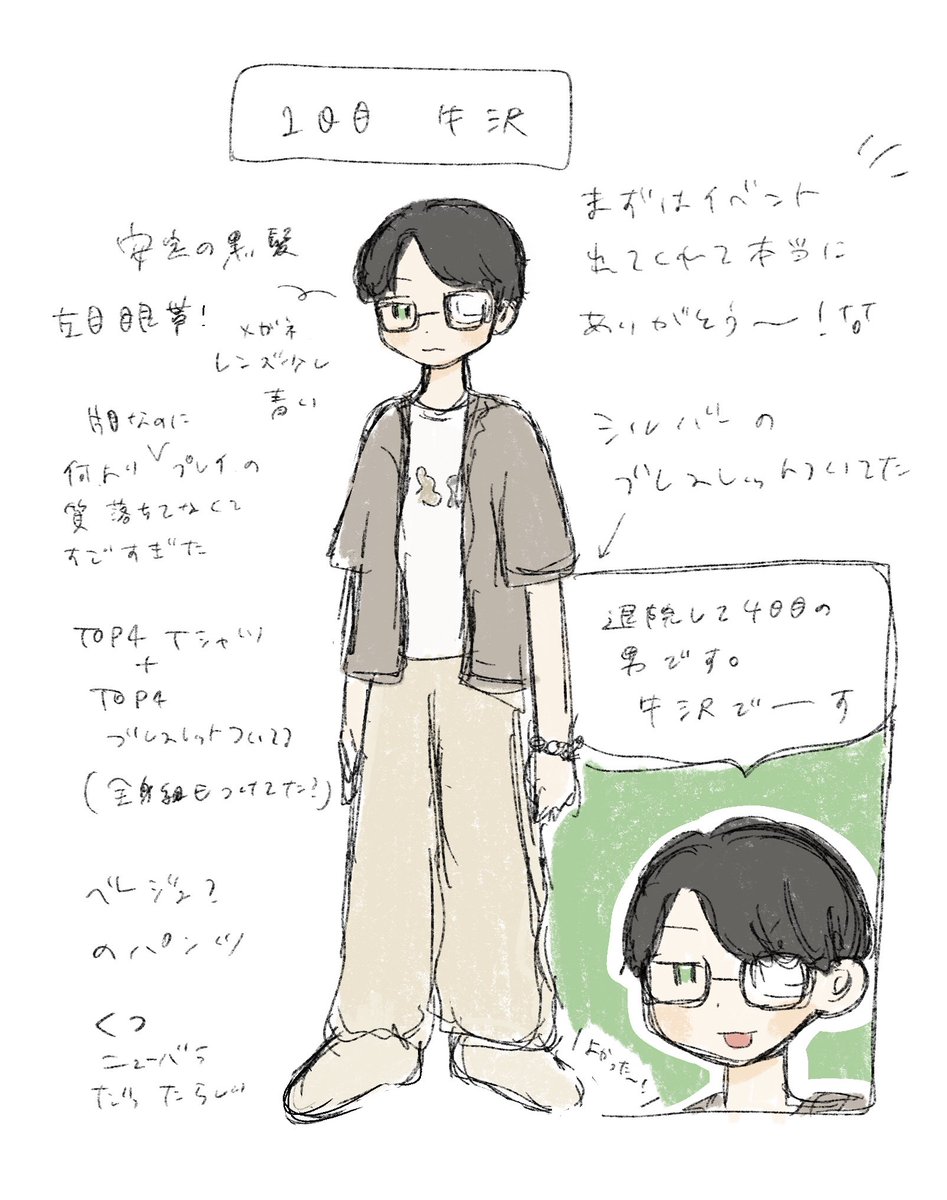 1日目 牛沢
まずはイベント
出てくれて本当に
ありがとう〜!泣
安定の黒髪
左目眼帯!
メガネ
レンズ少し
青い
片目なのに
何より プレイの
質落ちてなくて
すごすぎた
シルバーの
ブレスレットついてた
TOP4 Tシャツ
+
TOP4
ブレスレットついてる
(全身組もつけてた?)
退院して4日目の
男です。
牛沢でーす
ベージュ?
のパンツ
くつ
ニューバラ
だったらしい
よかった〜!